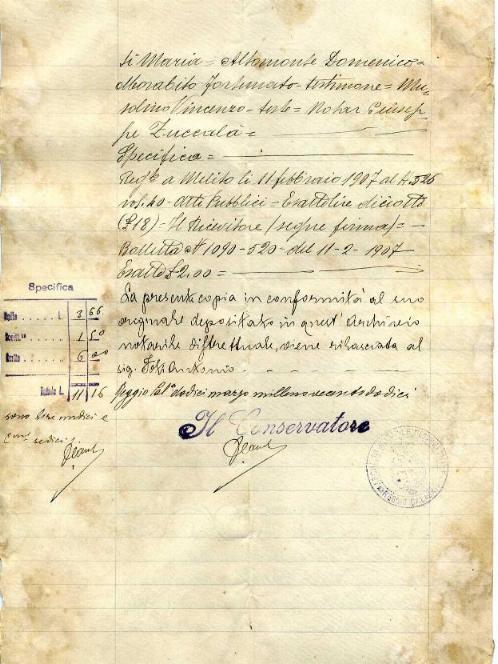 ti Maria = Altomonte Domenico =
Morabito Fortunato - testimone = Mu-
solino Vincenzo - teste = Notar Giusep
pe Zuccalà =
Specifica =
Reg.to a Melito li 11 febbraio 1907 al N. 526
Atti Pubblici = Esatte lire diciotto
(£18) = Il Ricevitore (segue firma) =
Bolletta N 1090 - 520 - del 11 - 2 - 1907
Esatto £ 2.00 =
La presente copia in conformità al suo
originale depositato in quest' Archivio
notarile distrettuale, viene rilasciata al
sig. Antonio
Reggio Cal. dodici marzo millenovecentododici
Il Conservatore
Specifica
3 66
1 50
6 00
Totale L. 11 16
sono lire undici e
cent. sedici